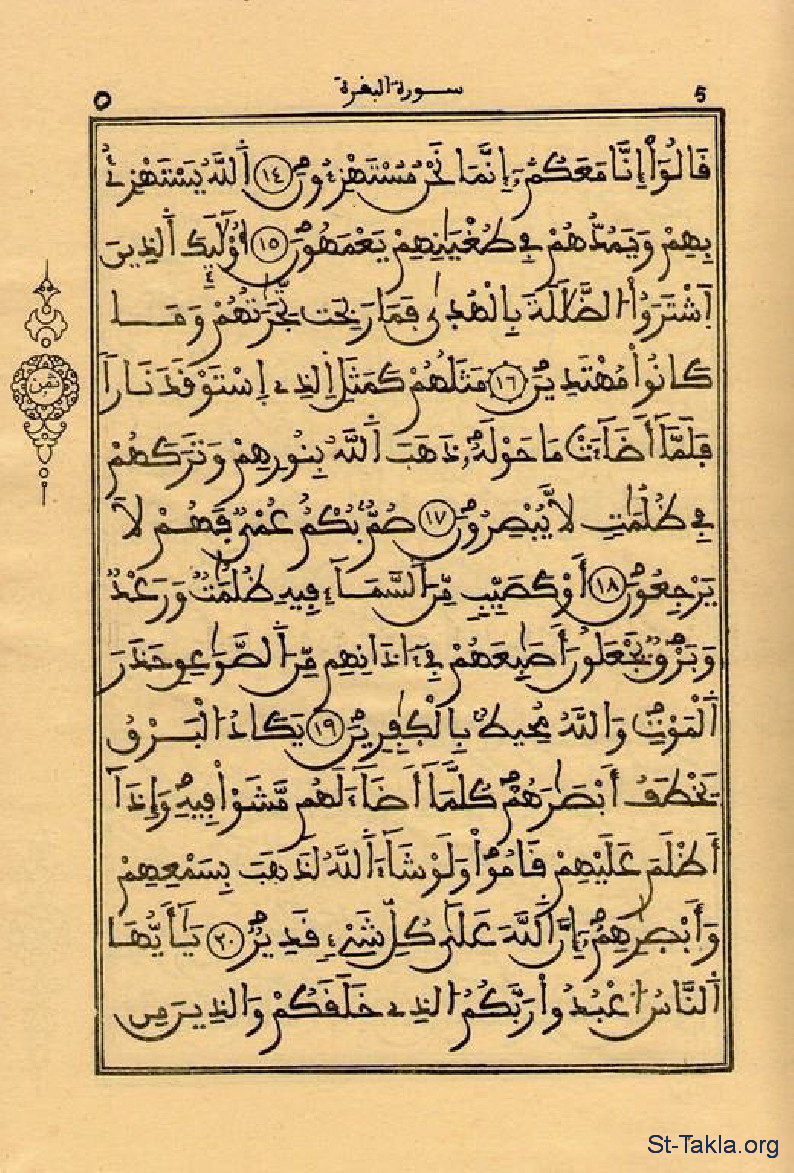 5 سورة البقرة ٥
قَالُوٓاْ إِنَّا مَعَكُمُۥٓ إِنَّمَا نَحْنُ مُسْتَهْزِءُونَ ١٤ اَ۬للَّهُ يَسْتَهْزِۓُ
بِهِمْ وَيَمُدُّهُمْ فِے طُغْيَٰنِهِمْ يَعْمَهُونَ ١٥ أُوْلَٰٓئِكَ اَ۬لذِينَ
اَ۪شْتَرَوُاْ اُ۬لضَّلَٰلَةَ بِالْهُد۪ىٰ فَمَا رَبِحَت تِّجَٰرَتُهُمْ وَمَا
كَانُواْ مُهْتَدِينَ ١٦ مَثَلُهُمْ كَمَثَلِ اِ۬لذِے اِ۪سْتَوْقَدَ نَاراٗ
فَلَمَّآ أَضَآءَتْ مَا حَوْلَهُۥ ذَهَبَ اَ۬للَّهُ بِنُورِهِمْ وَتَرَكَهُمْ
فِے ظُلُمَٰتٖ لَّا يُبْصِرُونَ ١٧ صُمُّۢ بُكْمٌ عُمْيٞ فَهُمْ لَا
يَرْجِعُونَ ١٨ أَوْ كَصَيِّبٖ مِّنَ اَ۬لسَّمَآءِ فِيهِ ظُلُمَٰتٞ وَرَعْدٞ
وَبَرْقٞ يَجْعَلُونَ أَصَٰبِعَهُمْ فِےٓ ءَاذَانِهِم مِّنَ اَ۬لصَّوَٰعِقِ حَذَرَ
اَ۬لْمَوْتِ وَاللَّهُ مُحِيطُۢ بِالْكٰ۪فِرِينَ ١٩ يَكَادُ اُ۬لْبَرْقُ
يَخْطَفُ أَبْصَٰرَهُمْ كُلَّمَآ أَضَآءَ لَهُم مَّشَوْاْ فِيهِ وَإِذَآ
أَظْلَمَ عَلَيْهِمْ قَامُواْ وَلَوْ شَآءَ اَ۬للَّهُ لَذَهَبَ بِسَمْعِهِمْ
وَأَبْصٰ۪رِهِمُۥٓ إِنَّ اَ۬للَّهَ عَلَىٰ كُلِّ شَےْءٖ قَدِيرٞ ٢٠ يَٰٓأَيُّهَا
اَ۬لنَّاسُ اُ۟عْبُدُواْ رَبَّكُمُ اُ۬لذِے خَلَقَكُمْ وَالذِينَ مِن
ثمن
St-Takla.org